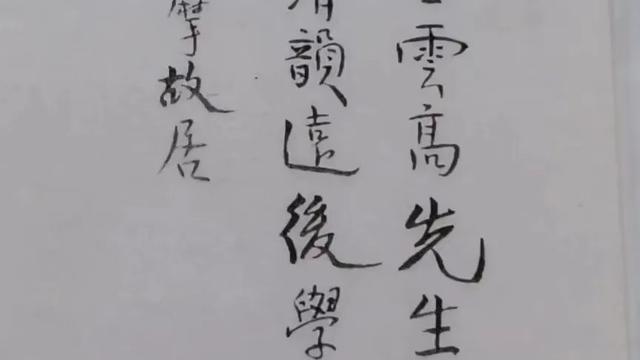 雲高先生
韻遠後學
摩故居